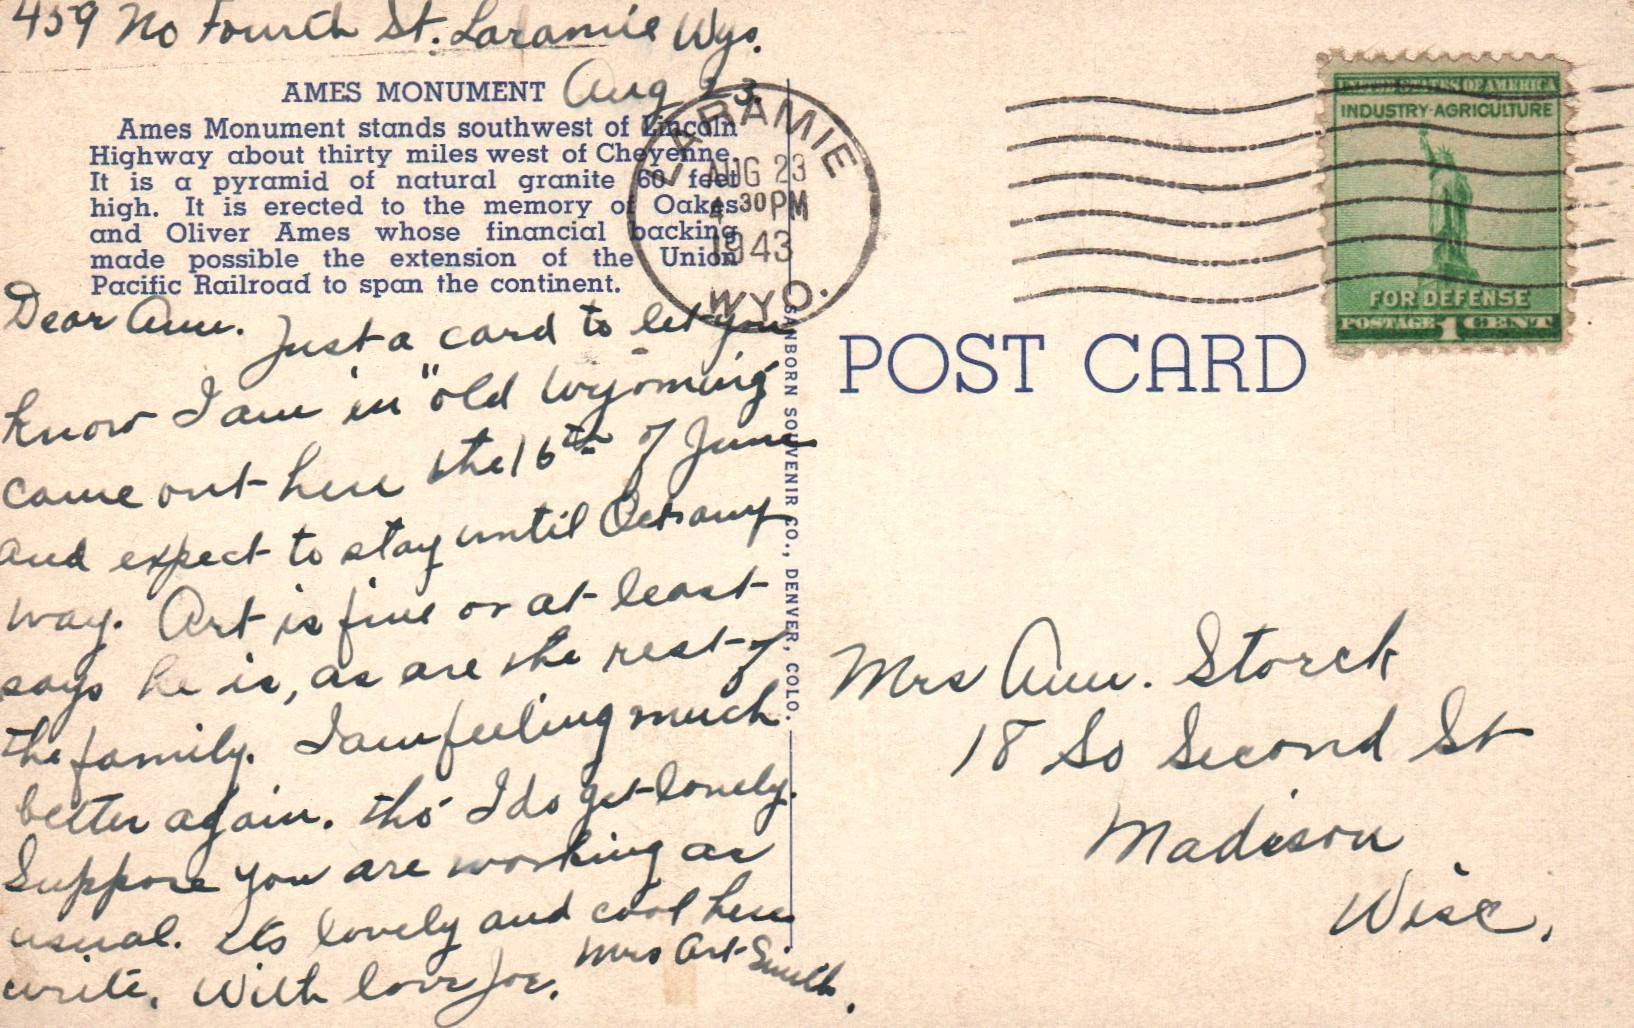 459 No Fourth St. Laramie Wyo.
Aug 23.
AMES MONUMENT
Ames Monument stands southwest of Lincoln
Highway about thirty miles west of Cheyenne.
It is a pyramid of natural granite 60 feet
high. It is erected to the memory of Oakes
and Oliver Ames whose financial backing
made possible the extension of the Union
Pacific Railroad to span the continent.
Dear Ann.
Just a card to let you
know I am in "old Wyoming
came out here the 16th of June
and expect to stay until Oct any
way. Art is fine or at least
says he is, as are the rest of
the family. I am feeling much
better again. tho I do get lonely.
Suppose you are working as
usual. Its lovely and cool here
write. With love Joe.
Mrs Art Smith.
SANBORN SOUVENIR CO., DENVER, COLO.
LARAMIE
AUG 23
4 30PM
1943
WYO.
UNITED STATES OF AMERICA
INDUSTRY-AGRICULTURE
FOR DEFENSE
POSTAGE 1 CENT
POST CARD
Mrs Ann. Storck
18 So Second St
Madison
Wisc.